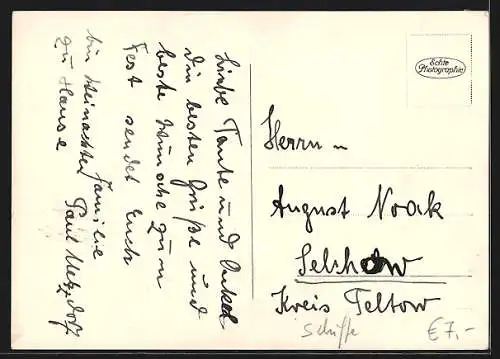 Liebe Tante und Onkel
Die besten Grüße und
beste Wünsche zum
Fest sendet Euch
Familie
Paul Metzdorf
bin Weinachten
zu Hause
Echte
Photographie
Herrn
August Noack
Selchow
Kreis Teltow
Schiffe
€7,-